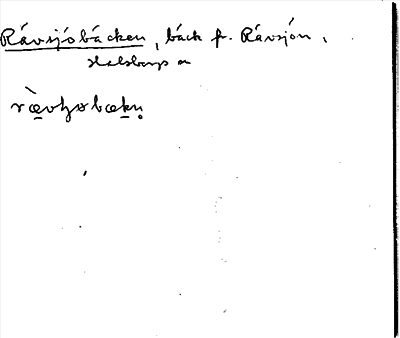 Rävsjöbäcken, bäck fr. Rävsjön,
Halsbergs a
rævʃøbækn̥